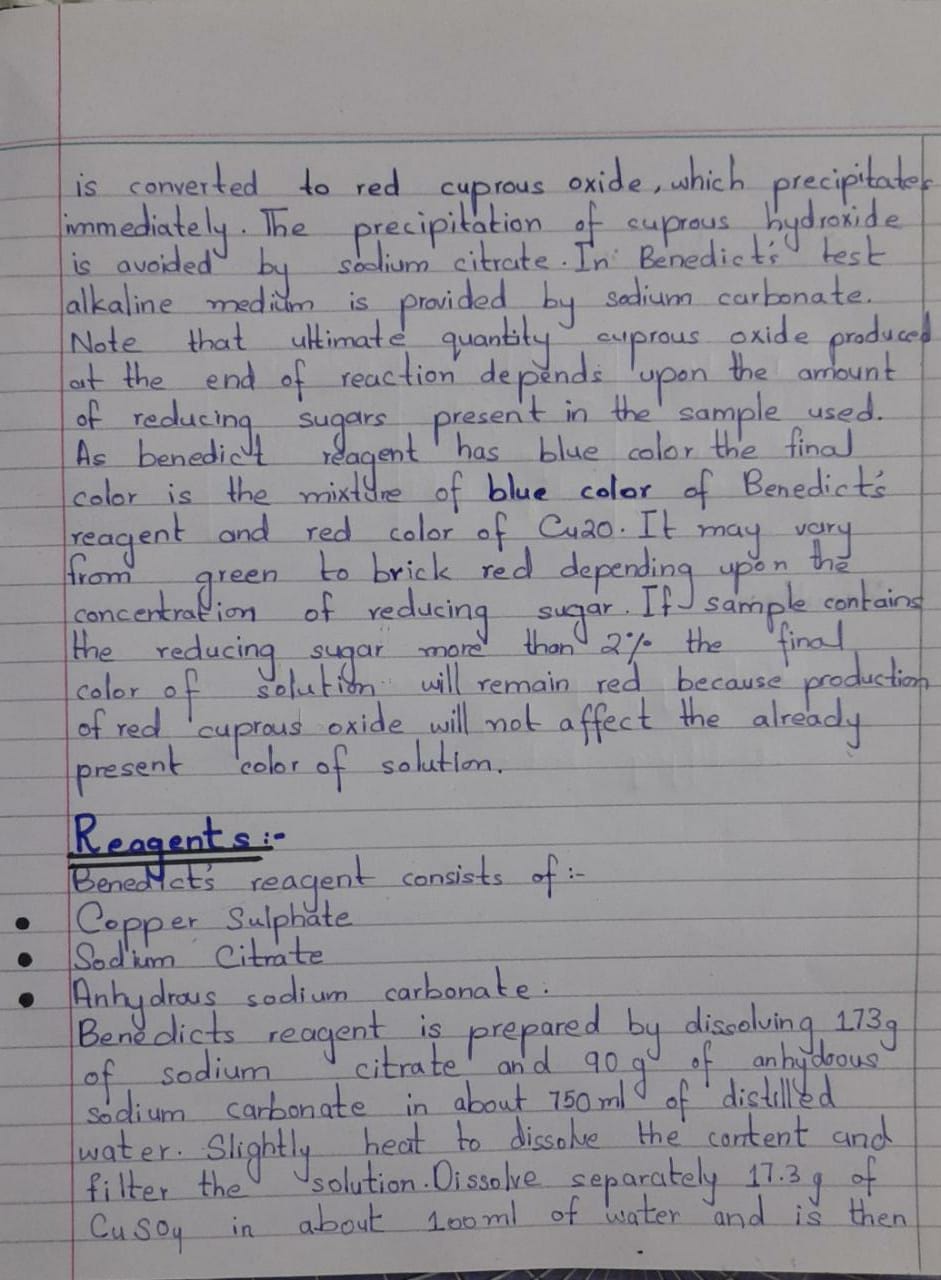 is converted to red cuprous oxide, which precipitates
immediately. The precipitation of cuprous hydroxide
is avoided by sodium citrate. In Benedict's test
alkaline medium is provided by sodium carbonate.
Note that ultimate quantity cuprous oxide produced
at the end of reaction depends upon the amount
of reducing sugars present in the sample used.
As benedict reagent has blue color the final
color is the mixture of blue color of Benedict's
reagent and red color of Cu2O. It may vary
from green to brick red depending upon the
concentration of reducing sugar. If sample contains
the reducing sugar more than 2% the final
color of solution will remain red because production
of red cuprous oxide will not affect the already
present color of solution.
Reagents:-
Benedict's reagent consists of :-
• Copper Sulphate
• Sodium Citrate
• Anhydrous sodium carbonate.
Benedicts reagent is prepared by dissolving 173g
of sodium citrate and 90 g of anhydrous
sodium carbonate in about 750 ml of distilled
water. Slightly heat to dissolve the content and
filter the solution. Dissolve separately 17.3 g of
CuSO4 in about 100 ml of water and is then